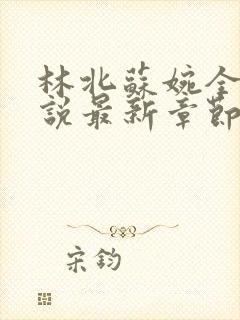 林北蘇婉全
說最新章節
宋鈞